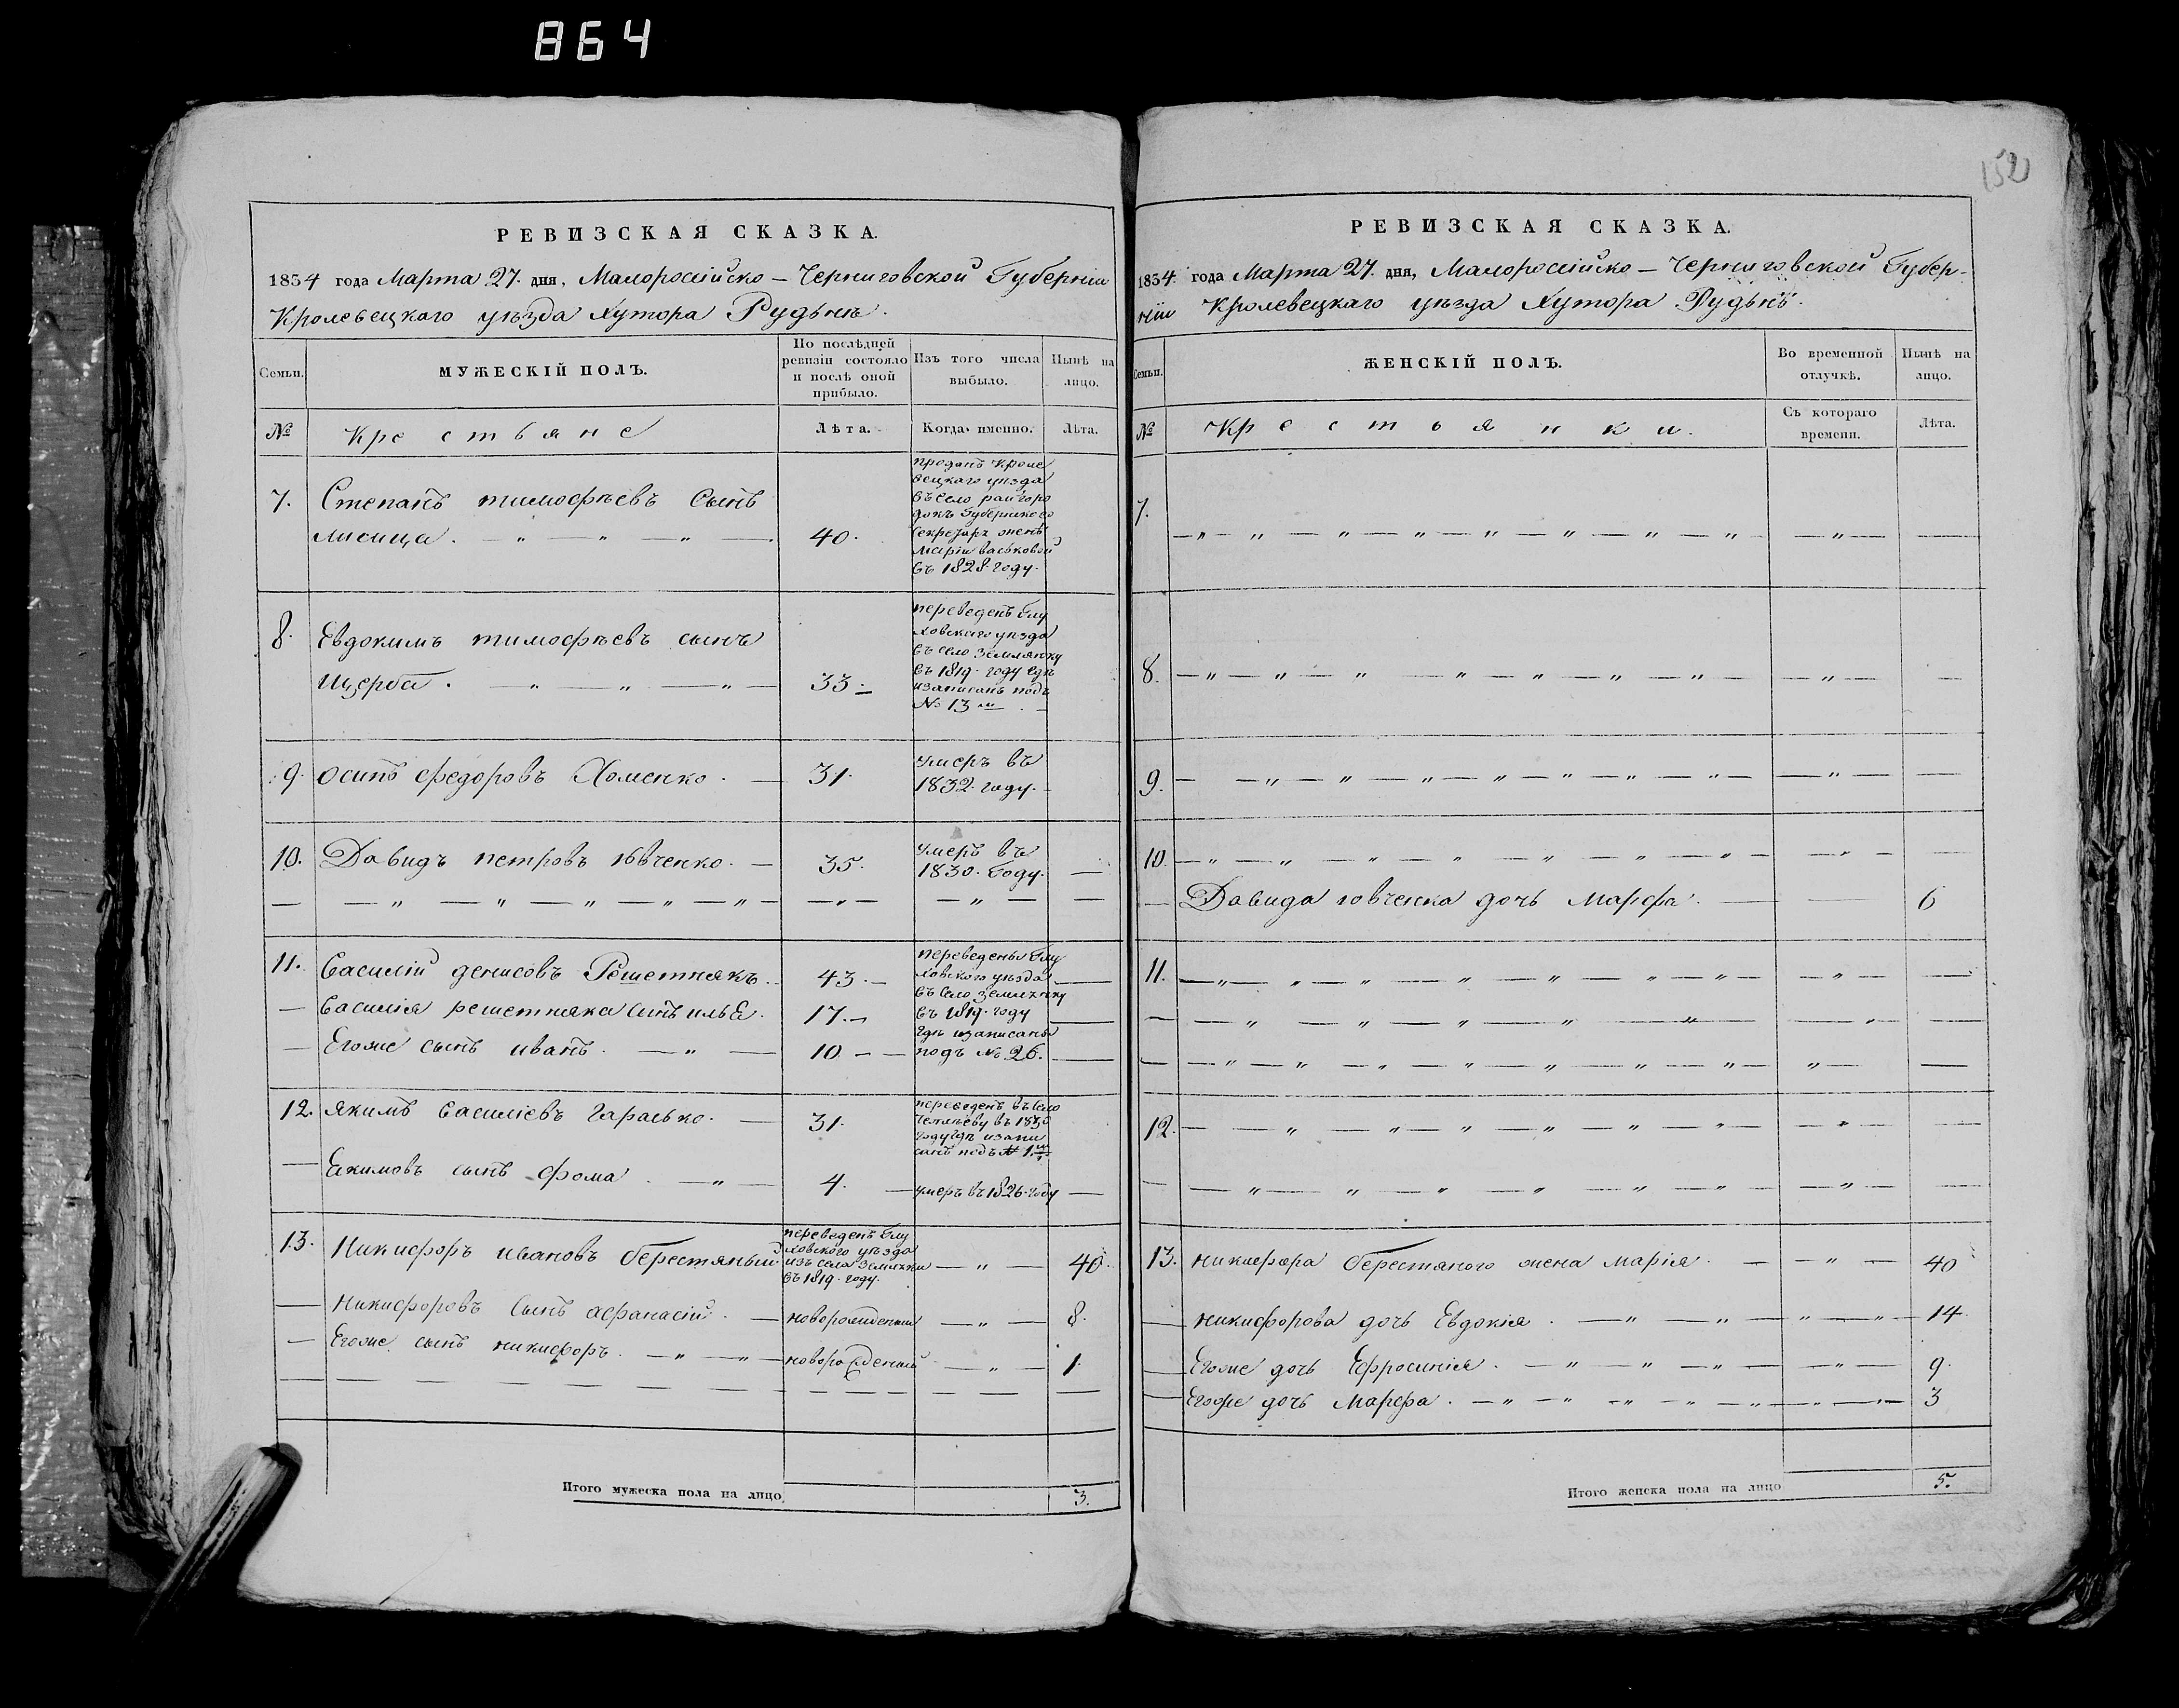 864
РЕВИЗСКАЯ СКАЗКА.
1834 года Марта 27. дня, Малоросiйско — Черниговской Губернiи
Кролевецкаго уѣзда Хутора Рудьнѣ.
Семьи.
МУЖЕСКIЙ ПОЛЪ.
По послѣдней ревизiи состояло и послѣ оной прибыло.
Изъ того числа выбыло.
Нынѣ на лицо.
№
Крестьяне
Лѣта.
Когда именно.
Лѣта.
7. Степанъ тимофѣевъ Сынъ
лисица. — " — " — " — 40.
проданъ Кроле
вецкаго уѣзда
въ Село райгоро
докъ Губернского
Секретаря женѣ
Марiи васьковой
въ 1828. году.
8. Евдокимъ тимофѣевъ сынъ
Щерба. — " — " — " — 33. —
переведенъ Глу
ховскаго уѣзда
въ село землянку
въ 1819. году гдѣ
изаписанъ подъ
№ 13 м
9. осипъ федоровъ Хоменко. — 31.
умеръ въ
1832. году.
10. Давидъ петровъ ювченко. — 35.
умеръ въ
1830. Году. —
— — " — " — " — " — " — — " — — " — —
11. Василiй денисовъ Решетнякъ. 43. —
— Василiя решетняка Сынъ илья. 17. —
— Егоже сынъ иванъ. — " — 10 — —
переведены Глу
ховского уѣзда
въ село землянку
въ 1819. году
гдѣ изаписаны
подъ № 26.
12. якимъ Василiевъ Гарасько. — 31.
переведенъ въ село
въ 1830
году гдѣ изапи
санъ подъ № 1.м
— Екимовъ сынъ фома. — " — 4. — умеръ въ 1826. году —
13. Никифоръ ивановъ берестяный
переведенъ Глу
ховского уѣзда
изъ села землянки
въ 1819. году.
— " — 40.
— никифоровъ Сынъ афанасiй. — новорожденный — " — 8.
— Егоже сынъ никифоръ. — " — " — новорожденный — " — 1.
Итого мужеска пола на лицо 3.
152
РЕВИЗСКАЯ СКАЗКА.
1834. года Марта 27. дня, Малоросiйско — Черниговской Губер-
нiи Кролевецкаго уѣзда Хутора Рудьнѣ.
Семьи.
ЖЕНСКIЙ ПОЛЪ.
Во временной отлучкѣ.
Нынѣ на лицо.
№
Крестьянки.
Съ котораго времени.
Лѣта.
7. — " — " — " — " — " — " — " — " — " — —
8. — " — " — " — " — " — " — " — — " — —
9. — " — " — " — " — " — " — " — — " — —
10. — " — " — " — " — " — " — " — — " — —
— Давида ювченка дочь Марфа. — — 6
11. — " — " — " — " — " — " — " — — " — —
— — " — " — " — " — " — — " — —
— — " — " — " — " — " — " — " — " — —
12. — " — " — " — " — " — " — — " — —
— — " — " — " — " — " — " — — " — —
13. никифора берестяного жена марiя. — — " — 40
— никифорова дочь Евдокiя. — " — " — " — " — 14.
— Егоже дочь Ефросинiя. — " — " — " — — " — 9.
— Егоже дочь Марфа. — " — " — " — " — " — " — " — 3
Итого женска пола на лицо 5.